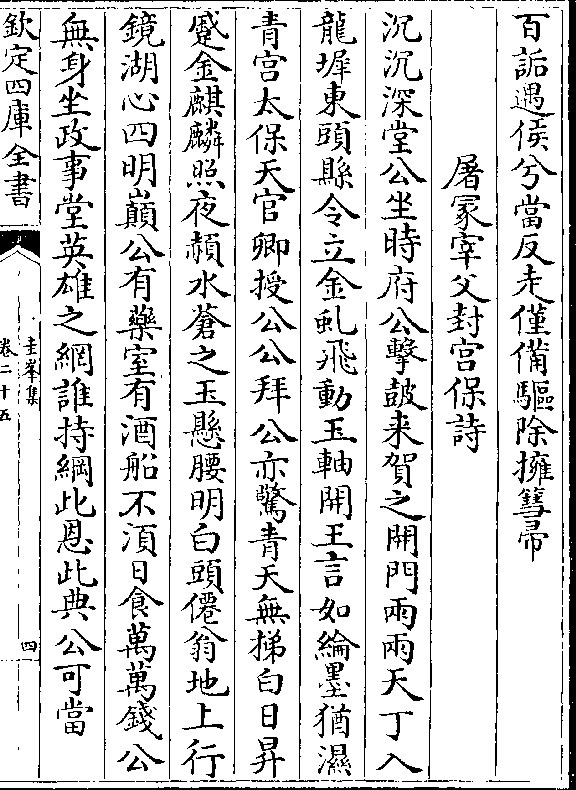 百詬遇侯兮當反走僅備驅除擁篲帚
屠冢宰父封宫保詩
沉沉深堂公坐時府公擊鼓来賀之開門兩兩天丁入
龍墀東頭縣令立金虬飛動玉軸開王言如綸墨猶濕
青宫太保天官卿授公公拜公亦驚青天無梯白日昇
蹙金麒麟照夜赬水蒼之玉懸腰明白頭僊翁地上行
鏡湖心四明巔公有藥室有酒船不湏日食萬萬錢公
無身坐政事堂英雄之網誰持綱此恩此典公可當
欽定四庫全書
圭峯集
卷二十五
四